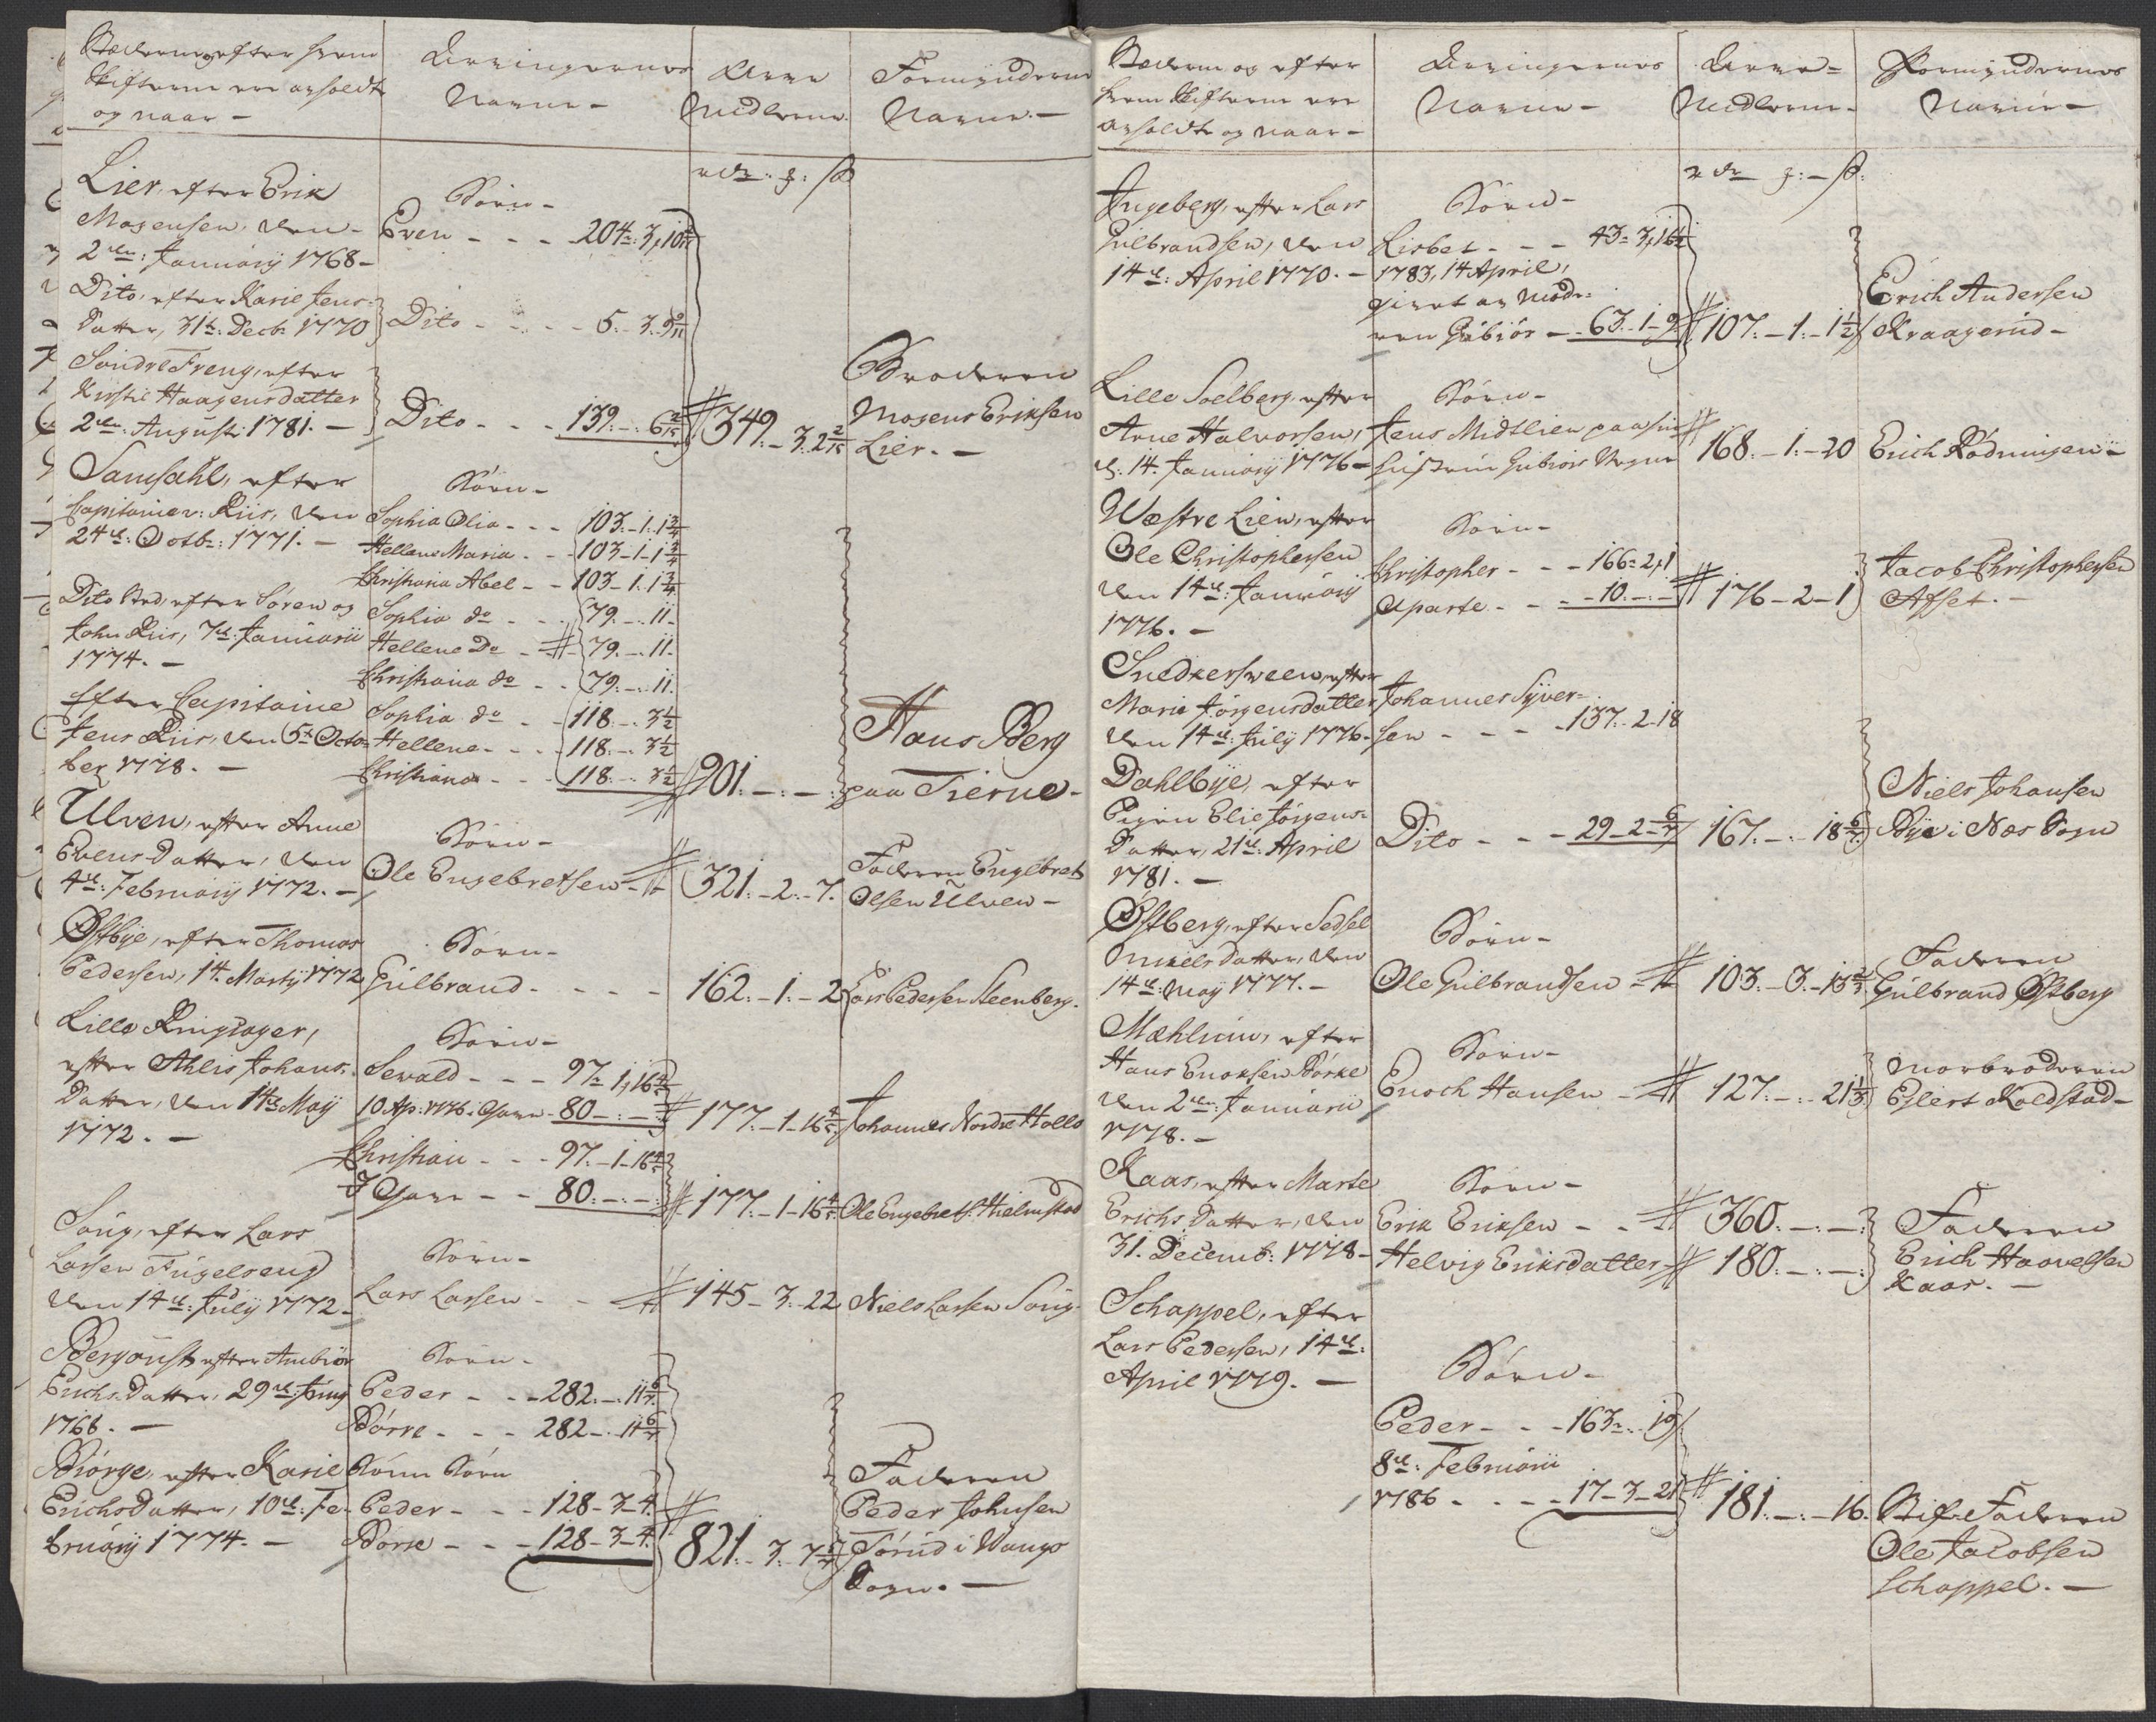 Stæderne, efter hvem
Skifterne ere avholdt
og naar -
Arvingernes
Navne -
Arve
Midlerne.
Formynderne
Navne. -
rdr. ꝗ: ß
Lier, efter Erik
Mogensen, den -
2den: Januarij 1768 -
Børn -
Even - - - 204 - 3, 10
Dito, efter Karie Jens-
Datter, 31te: Decbr 1770
Dito - - - - 5. - 3. 9 9/11
Søndre Freng, efter
Kirstie Haagensdatter
2den. August: 1781. -
Dito - - - 139. -. 6 2/15
349. - 3. 2 2/15
Broderen
Mogens Eriksen
Lier. -
Samsahl, efter
Capitainen: Riis, den
24de: Octbr: 1771. -
Børn -
Sophia Olia - - - 103. - 1. 1 3/4
Hellene Maria - - 103 - 1 - 1 3/4
Christiana Abel - - 103 - 1. 1 3/4
Dito Sted, efter Søren og
John Riis, 7de. Januarii
1774. -
Sophia do - - - 79. -. 11 -
Hellene Do - - 79. -. 11.
Christiana do - - 79. -. 11.
Efter Capitaine
Jens Riis, den 5te Octo-
ber 1778. -
Sophia do - - 118. -. 3 1/2
Hellene - - - 118. -. 3 1/2
Christiana - - - 118. -. 3 1/2
901. -. -.
Hans Berg
paa Tierne -
Ulven, efter Anne
Evens Datter, den
4de: Februarij 1772. -
Børn -
Ole Engebretsen -
321. - 2. - 7.
Faderen Englbret
Olsen Ulven -
Østbye, efter Thomas
Pedersen, 14. Martij 1772
Børn -
Gulbrand - - - -
162. - 1. - 2
Lars Pedersen Steenberg.
Lille Ringsager,
efter Ahlis Johans-
Datter, den 14de May
1772. -
Børn -
Sevald - - - 97 - 1, 16 4/5
10 Ap. 1776 i Gave - 80 -. -
177. - 1 - 16 4/5
Johannes Nordre Holle
Christian - - - 97. - 1 - 16 4/5
I Gave - - 80. -. -.
177. - 1 - 16 4/5
Ole Engebrets. Hielmstad
Søug, efter Lars
Larsen Fugelseng
den 14de: July 1772 -
Børn -
Lars Larsen - -
145 - 3. - 22
Niels Larsen Søug.
Bergquist, efter Anbiør
Erichs Datter, 29de: Junij
1766. -
Børn -
Peder - - - 282. -. 11 6/7
Børre - - - 282 -. 11 6/7
Biørge, efter Karie
Erichs Datter, 10de: Fe-
bruarij 1774. -
Samme Børn
Peder - - - 128 - 3 - 4.
Børre - - - 128 - 3 - 4.
821. - 3. - 7 5/7
Faderen
Peder Johnsen
Törud i Wangs
Sogn. -
Stæderne og efter
hvem Skifterne ere
avholdte og naar -
Arvingernes
Navne -
Arve-
Midlerne -
Formyndernes
Navne -
rdr ꝗ: - ß.
Ingeberg, efter Lars
Gulbrandsen, den
14de: April 1770. -
Børn -
Lisbet - - - 43 - 3, 16 1/2
1783, 14 April,
givet av Mode-
ren Gubiør - 63. - 1 - 9
107. - 1. - 1 1/2
Erich Andersen
Kraagerud -
Lille Soelberg, efter
Arne Halvorsen,
d. 14. Januarij 1776 -
Børn -
Jens Midtlien paa sin
Hustrue Gubiørs Vegne
168. - 1. - 20
Erich Rødningen -
Westre Lien, efter
Ole Christophersen
den 14de: Januarij
1776. -
Børn -
Christopher - - - 166 - 2, 1
Aparte - - - 10. -. -
176 - 2 - 1
Jacob Christophersen
Afset. -
Snedkersveen, efter
Marie Jørgensdatter
den 14de: July 1776 -
Johannes Syver-
sen - - - - 137. - 2 - 18
Dahlbye, efter
Pigen Elie Jørgens-
Datter, 21de: April
1781. -
Dito - - - 29 - 2 - 6/7
167. -. - 18 6/7
Niels Johansen
Bye i Næs Sogn
Østberg, efter Sedsel
Mikels Datter, den
14de: May 1777. -
Børn -
Ole Gulbrandsen -
103. - 3. - 15 2/3
Faderen
Gulbrand Østberg
Mæhlum, efter
Hans Enoksen Børke
den 2den: Januarii
1778. -
Børn -
Enoch Hansen -
127. -. - 21 1/3
Morbroderen
Eilert Koldstad -
Kaas, efter Marte
Erichs Datter, den
31. Decemb: 1778 -
Børn -
Erik Eriksen - -
360. -. -.
Helvig Eriksdatter -
180. -. -.
Faderen
Erich Haavelsen
Kaas. -
Schappel, efter
Lars Pedersen, 14de:
April 1779. -
Børn -
Peder - - - 163 -. - 19
8de: Februarii
1786 - - - - 17 - 3 - 21
181. -. - 16.
Stif-Faderen
Ole Jacobsen
Schappel. -